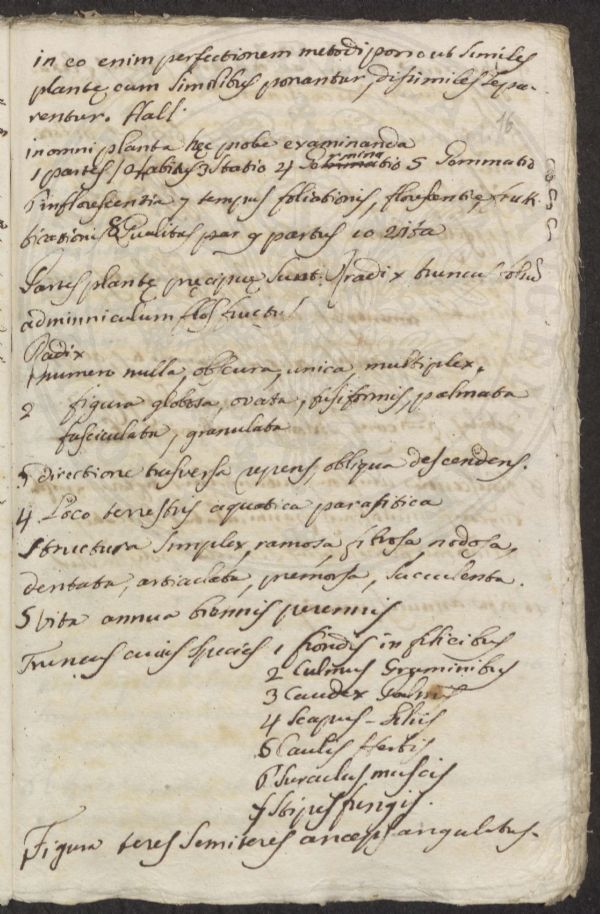 in eo enim perfectionem metodi porro ut similes
plantę cum similibus ponantur, disimiles sepa-
rentur. Hall.
16
in omni planta hęc probe examinanda
1 partes 2 habitus 3 statio 4 Germinatio 5 Gommatio
6 inflorescentia 7 tempus foliationis, florescentię fruti-
ficationis 8 Qualitas par 9 partus 10 vita
Partes plantę pręcipuę sunt: radix truncus
adminniculum flos fructus
Radix
1 numero nulla, obscura, unica, multiplex,
2 figura globosa, ovata, fusiformis, palmata
fasciculata, granulata
3 directione trasversa repens, obliqua descendens.
4 Loco terrestris aquatica parasitica
structura simplex, ramosa, fibrosa, nodosa,
dentata, articulata, premorsa, succulenta.
5 Vita annua biennis perennis
Truncus cuius species 1 frondis in filicibus
2 Culmus Graminibus
3 Caudex Palmis
4 Scapus - Liliis
5 Caulis Herbis
6 Surculus muscis
7 Stipes fungis.
Figura teres semiteres anceps angulatus.